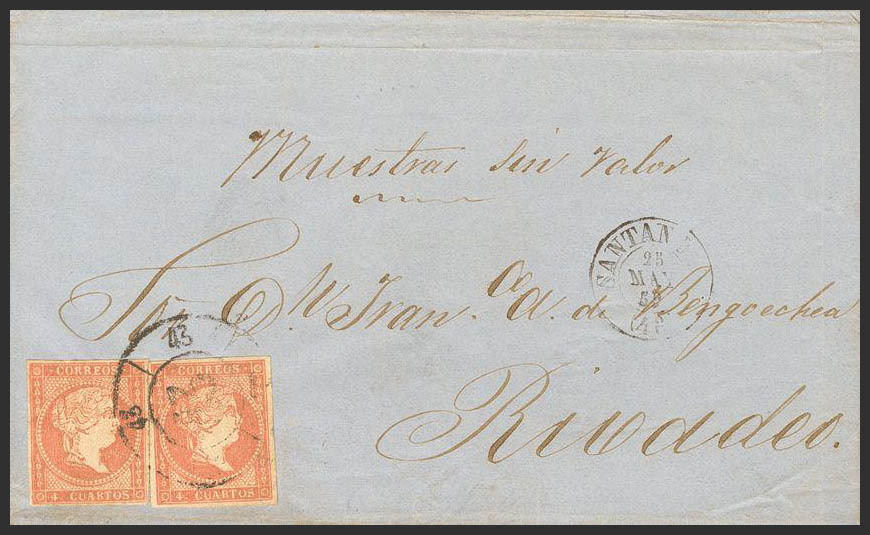 Muestras sin valor
Sr. Dn. Fran.co A. de Bengoechea
Rivadeo.
SANTAN
25
MA
43
43
CORREOS
4 CUARTOS
CORREOS
4 CUARTOS